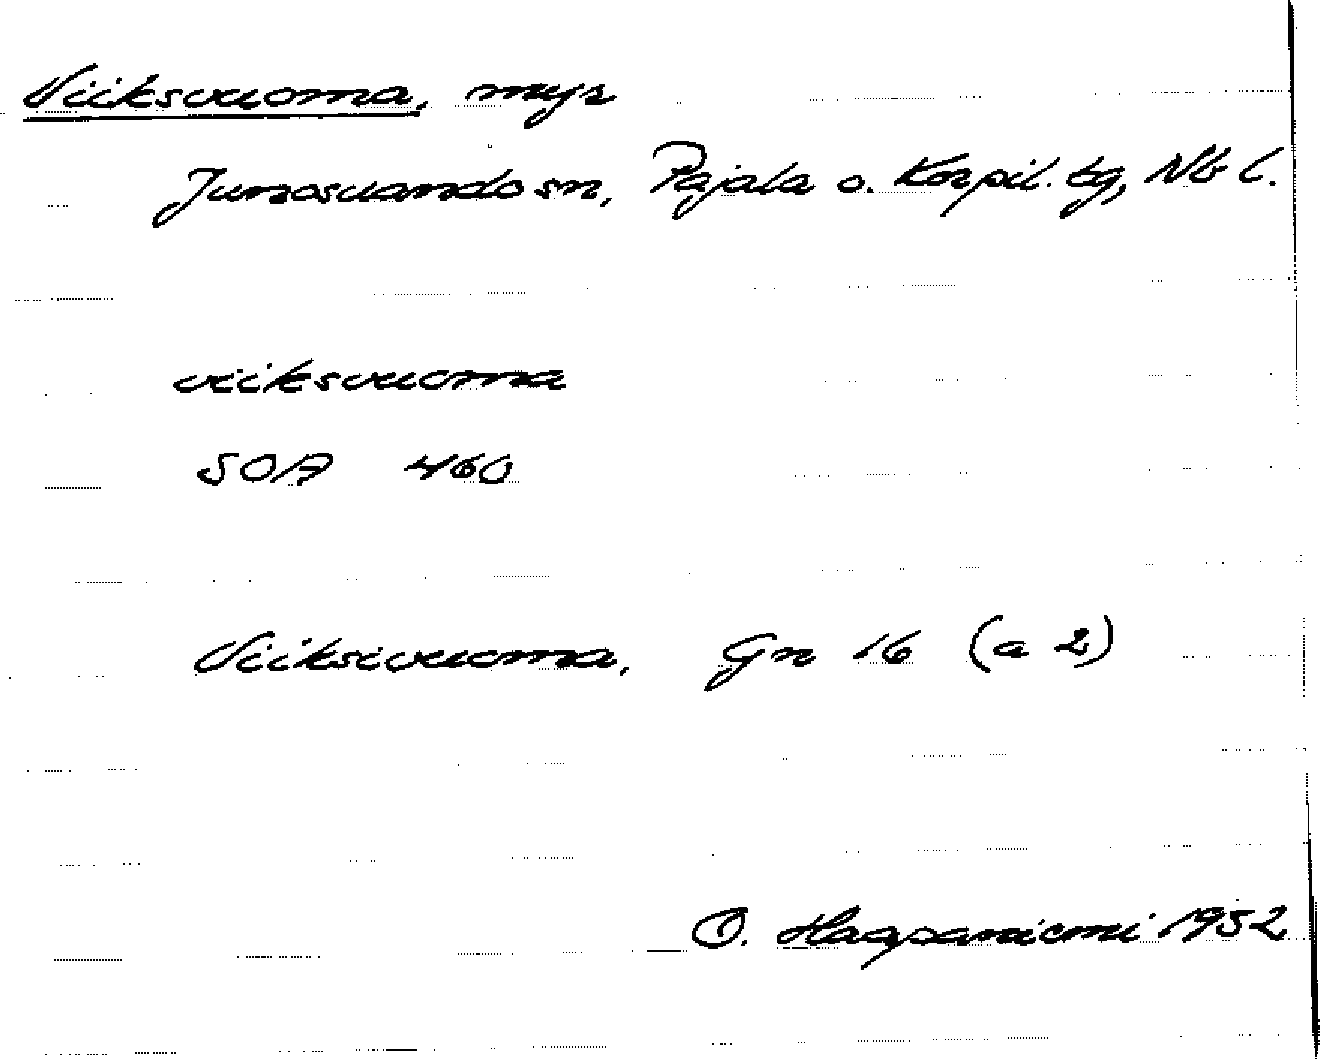 Viiksvuoma, myr
Junosuando sn, Pajala o. Korpil. tg, Nb l.
viiksvuoma
SOA 460
Viiksivuoma, Gn 16 (a 2)
O. Haapaniemi 1952